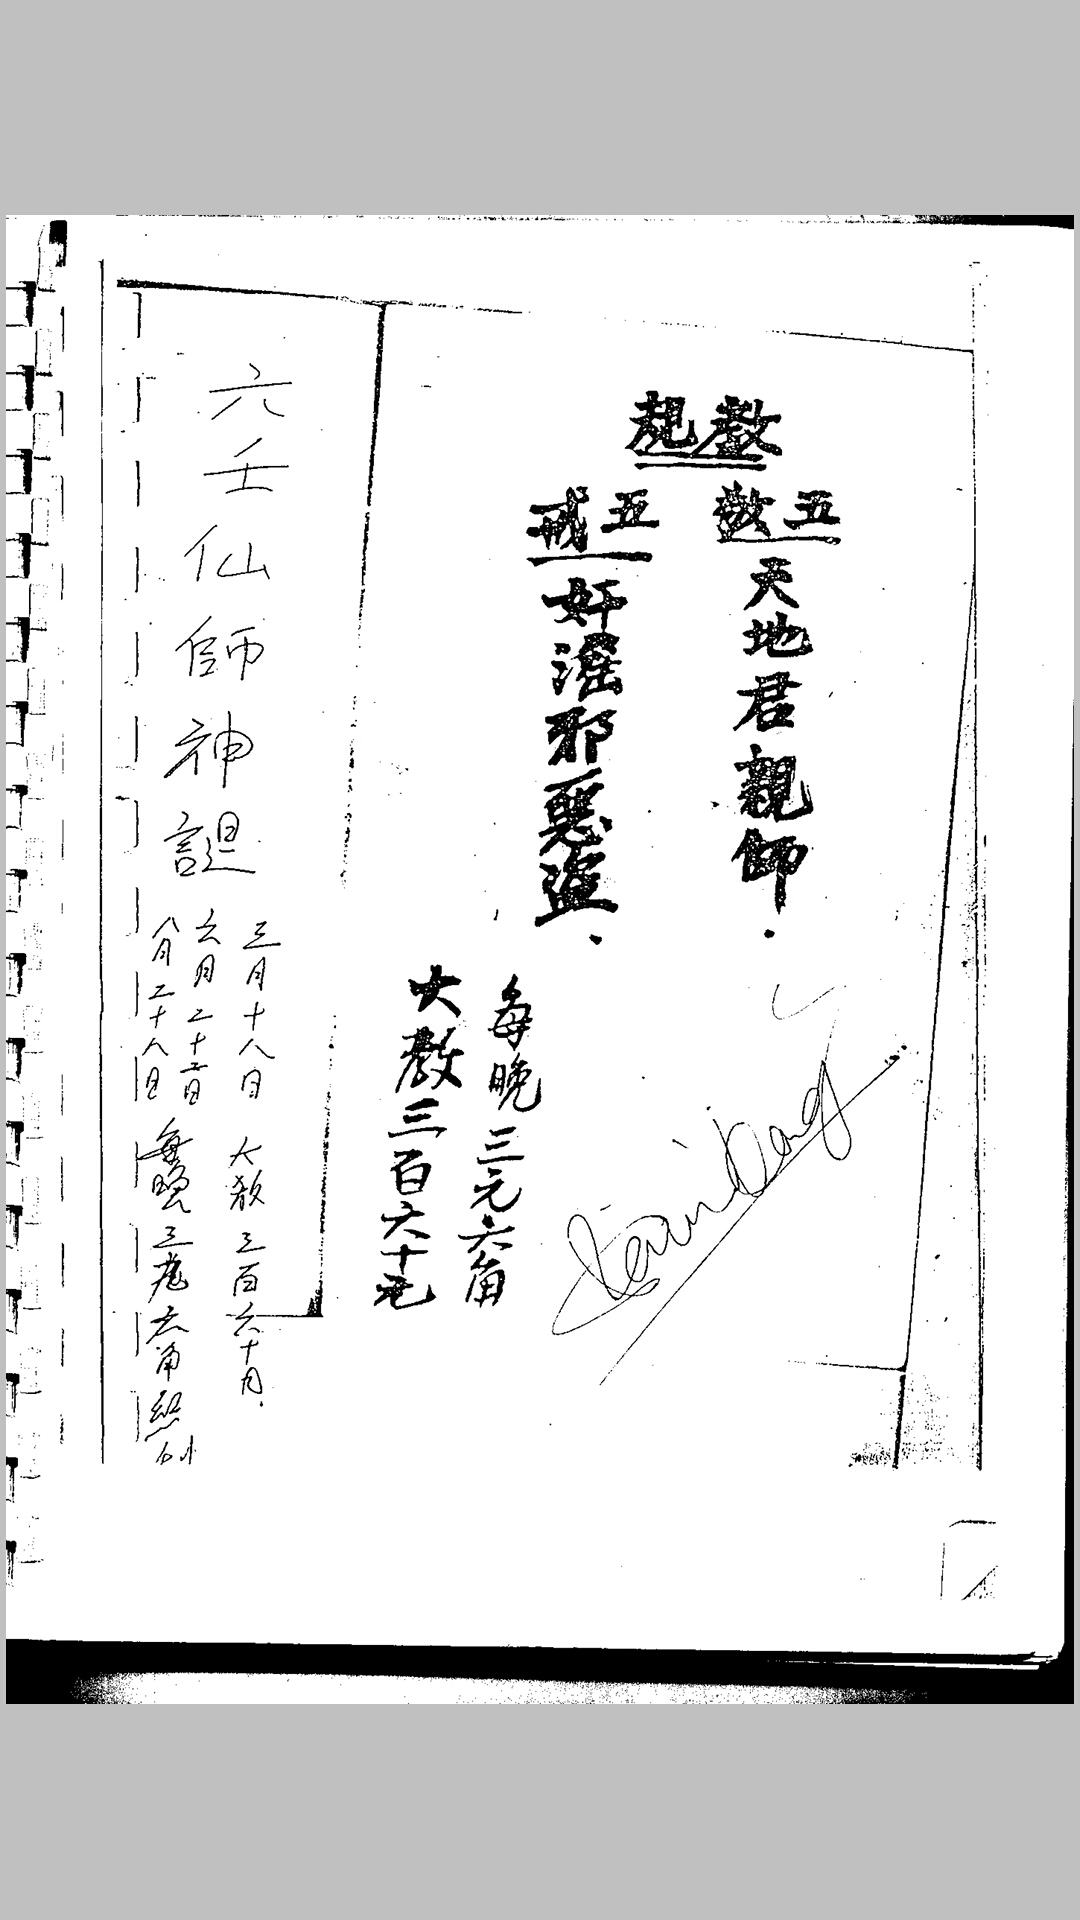 教規
五敬
天地君親師.
五戒
奸滛邪惡盜.
每晚三元六角
大教三百六十元
六壬仙師神誕
三月十八日 大教三百六十月.
六月二十二日
八月二十八日 每晚三元六角